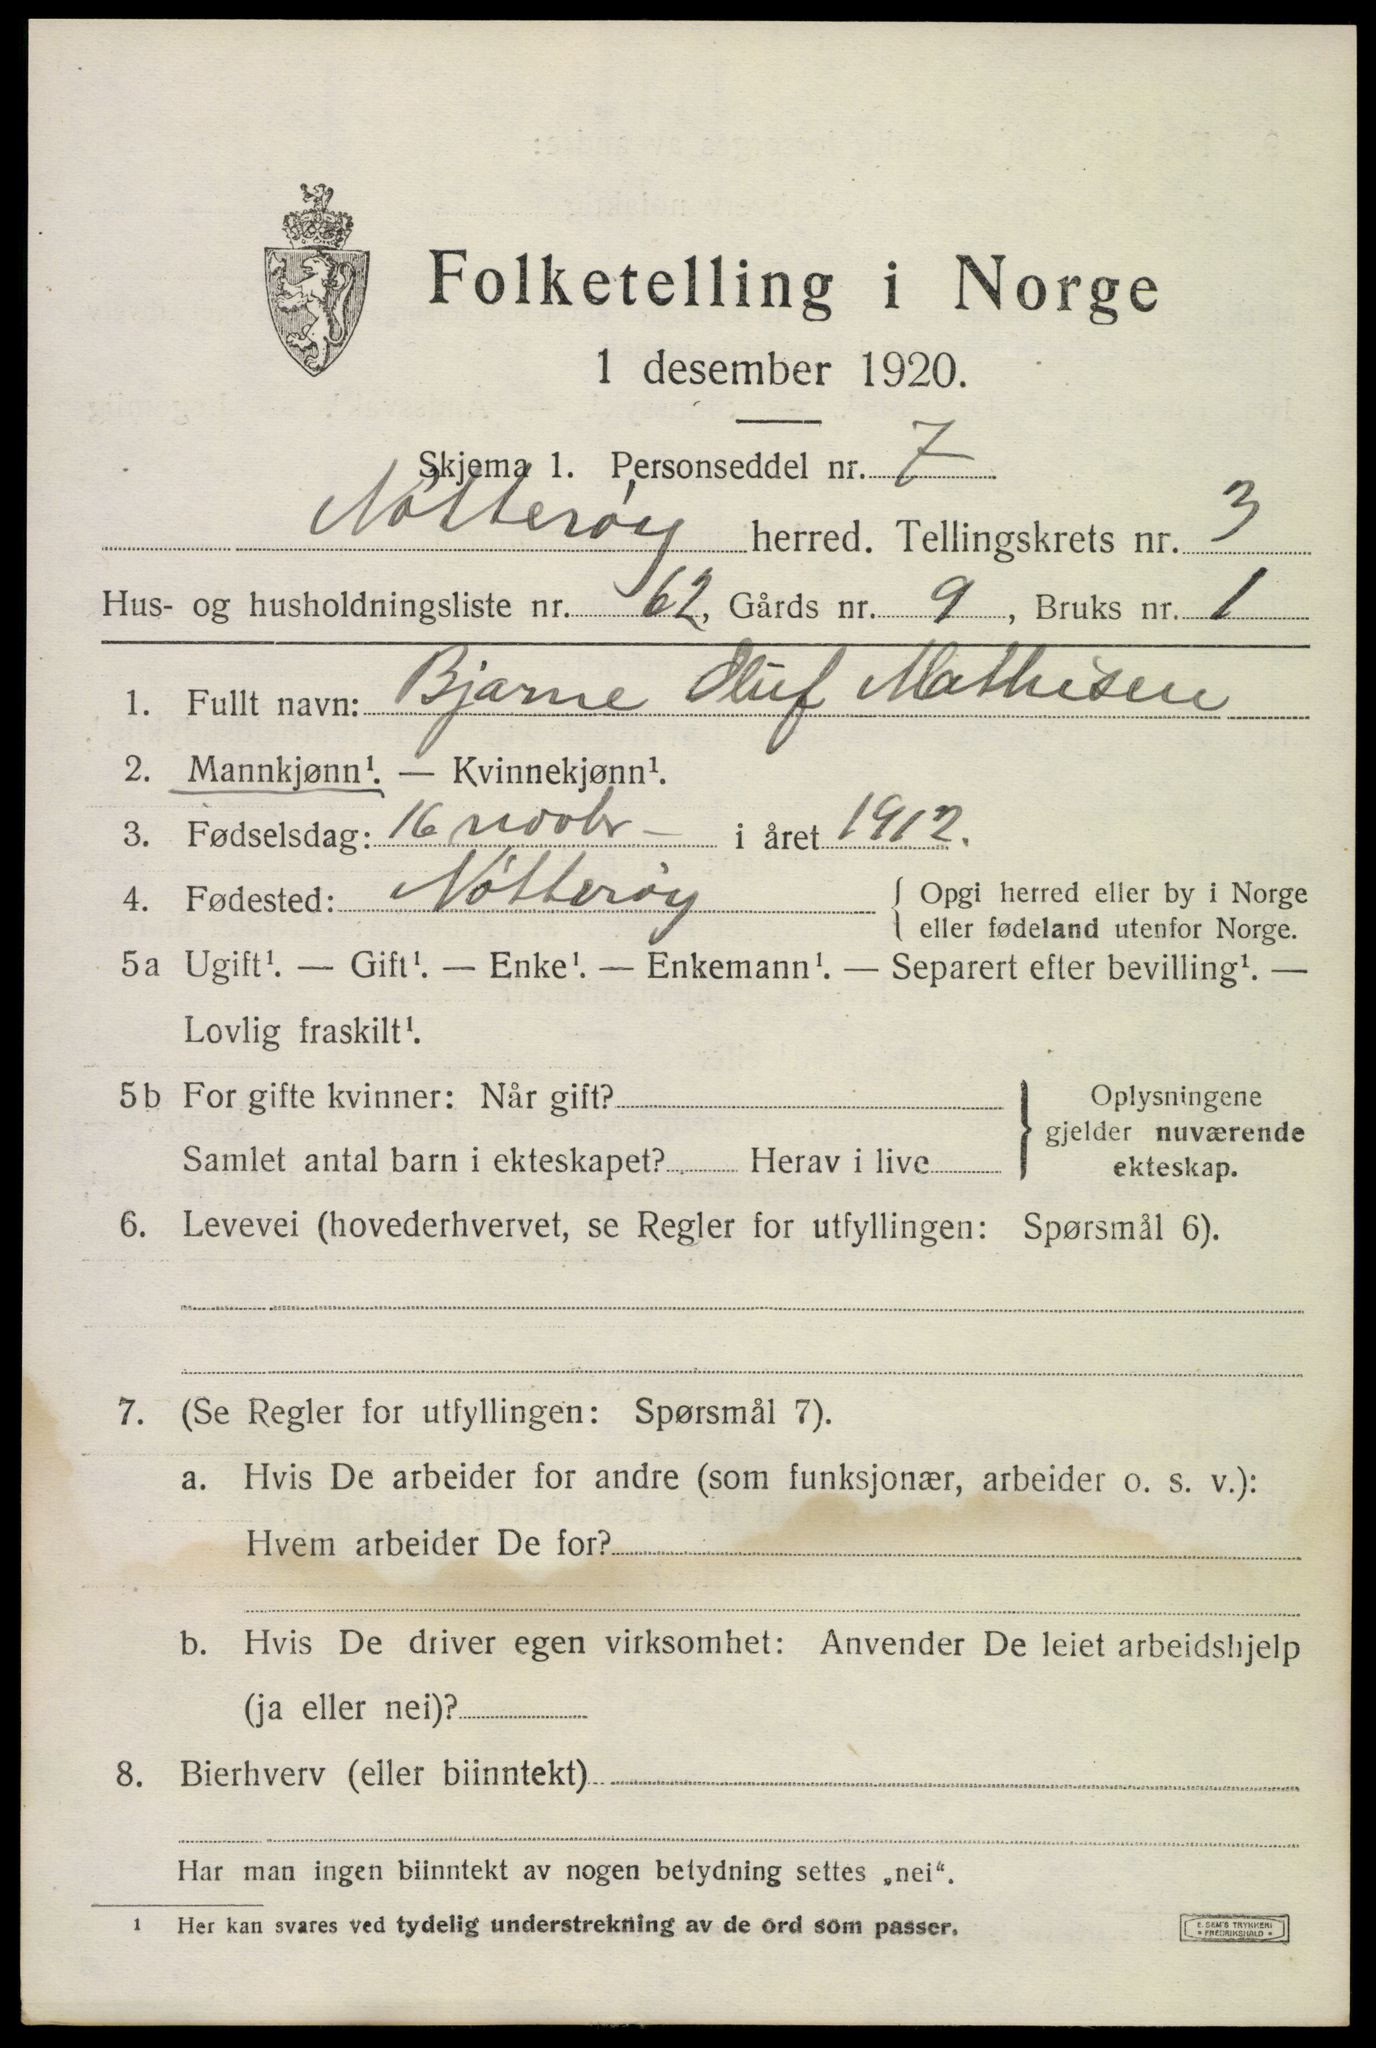 Folketelling i Norge
1 desember 1920.
Skjema 1. Personseddel nr. 7
Nøtterøy herred. Tellingskrets nr. 3
Hus- og husholdningsliste nr. 62, Gårds nr. 9, Bruks nr. 1
1. Fullt navn: Bjarne Oluf Mathisen
2. Mannkjønn¹. — Kvinnekjønn¹.
3. Fødselsdag: 16 novbr — i året 1912.
4. Fødested: Nøtterøy { Opgi herred eller by i Norge
{ eller fødeland utenfor Norge.
5a Ugift¹. — Gift¹. — Enke¹. — Enkemann¹. — Separert efter bevilling¹. —
Lovlig fraskilt¹.
5b For gifte kvinner: Når gift?
Samlet antal barn i ekteskapet? Herav i live
} Oplysningene
gjelder nuværende
ekteskap.
6. Levevei (hovederhvervet, se Regler for utfyllingen: Spørsmål 6).
7. (Se Regler for utfyllingen: Spørsmål 7).
a. Hvis De arbeider for andre (som funksjonær, arbeider o. s. v.):
Hvem arbeider De for?
b. Hvis De driver egen virksomhet: Anvender De leiet arbeidshjelp
(ja eller nei)?
8. Bierhverv (eller biinntekt)
Har man ingen biinntekt av nogen betydning settes „nei“.
¹ Her kan svares ved tydelig understrekning av de ord som passer.
E. SEM'S TRYKKERI
* FREDRIKSHALD *